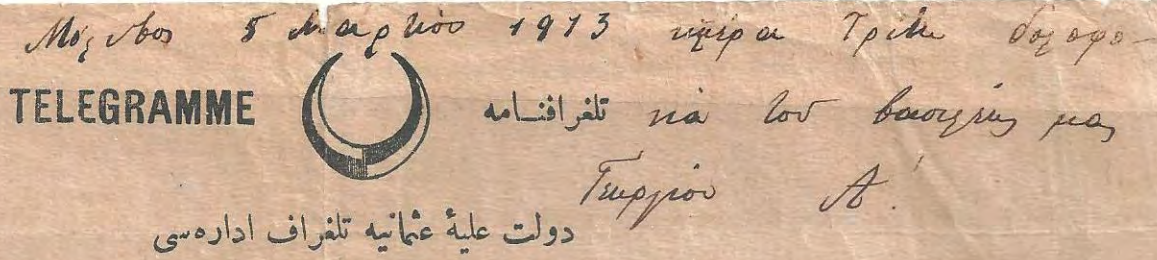 Μόλυβος 5 Μαρτίου 1913 ημέρα Τρίτη δολοφο-
TELEGRAMME تلغرافنامه
νία του βασιλέως μας
Γεωργίου Α'.
دولت علیهٔ عثمانیه تلغراف اداره‌سی